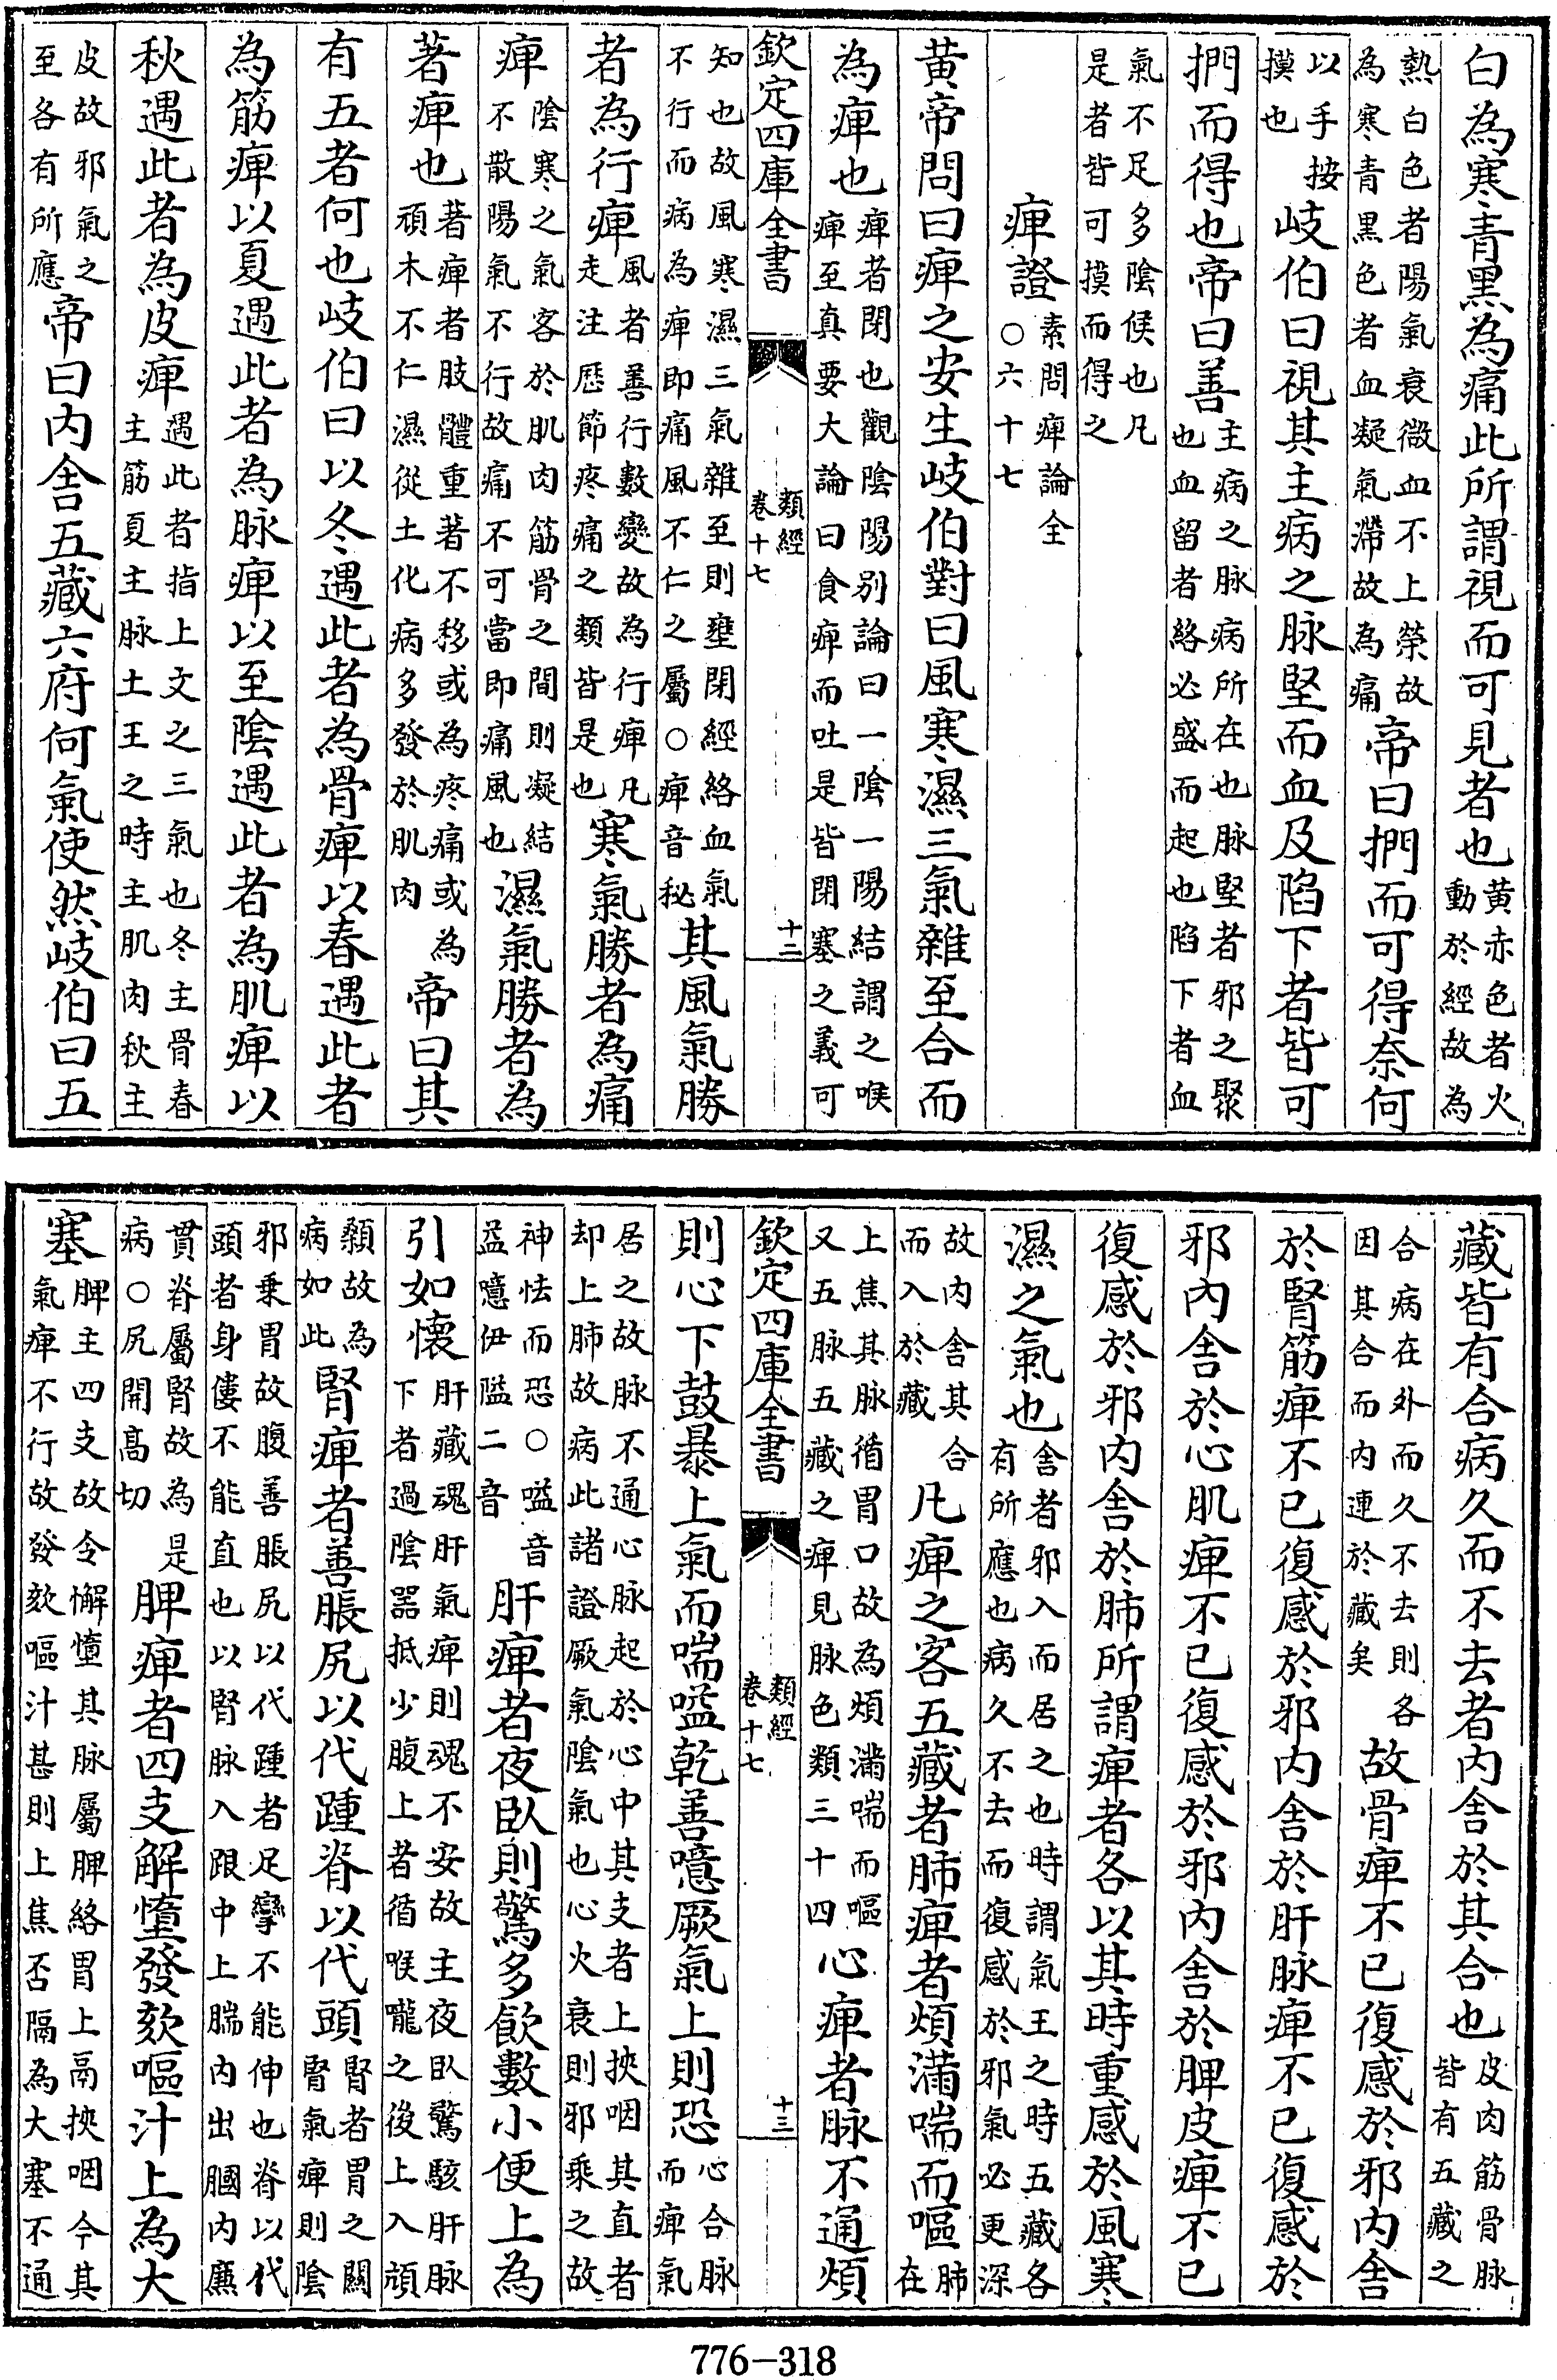 白為寒青黑為痛此所謂視而可見者也黄赤色者火動於經故為
熱白色者陽氣衰微血不上榮故為寒青黑色者血凝氣滯故為痛帝曰捫而可得奈何
以手按摸也岐伯曰視其主病之脉堅而血及陷下者皆可
捫而得也帝曰善主病之脉病所在也脉堅者邪之聚也血留者絡必盛而起也陷下者血
氣不足多陰候也凡是者皆可摸而得之
痺證素問痺論全○六十七
黄帝問曰痺之安生岐伯對曰風寒濕三氣雜至合而
為痺也痺者閉也觀陰陽別論曰一陰一陽結謂之喉痺至真要大論曰食痺而吐是皆閉塞之義可
欽定四庫全書 類經 卷十七 十二
知也故風寒濕三氣雜至則壅閉經絡血氣不行而病為痺即痛風不仁之屬○痺音秘其風氣勝
者為行痺風者善行數變故為行痺凡走注歷節疼痛之類皆是也寒氣勝者為痛
痺陰寒之氣客於肌肉筋骨之間則凝結不散陽氣不行故痛不可當即痛風也濕氣勝者為
著痺也著痺者肢體重著不移或為疼痛或為頑木不仁濕從土化病多發於肌肉帝曰其
有五者何也岐伯曰以冬遇此者為骨痺以春遇此者
為筋痺以夏遇此者為脉痺以至陰遇此者為肌痺以
秋遇此者為皮痺遇此者指上文之三氣也冬主骨春主筋夏主脉土王之時主肌肉秋主
皮故邪氣之至各有所應帝曰內舍五藏六府何氣使然岐伯曰五
藏皆有合病久而不去者內舍於其合也皮肉筋骨脉皆有五藏之
合病在外而久不去則各因其合而內連於藏矣故骨痺不已復感於邪內舍
於腎筋痺不已復感於邪內舍於肝脉痺不已復感於
邪內舍於心肌痺不已復感於邪內舍於脾皮痺不已
復感於邪內舍於肺所謂痺者各以其時重感於風寒
濕之氣也舍者邪入而居之也時謂氣王之時五藏各有所應也病久不去而復感於邪氣必更深
故內舍其合而入於藏凡痺之客五藏者肺痺者煩滿喘而嘔肺在
上焦其脉循胃口故為煩滿喘而嘔又五脉五藏之痺見脉色類三十四心痺者脉不通煩
欽定四庫全書 類經 卷十七 十三
則心下鼓暴上氣而喘嗌乾善噫厥氣上則恐心合脉而痺氣
居之故脉不通心脉起於心中其支者上挾咽其直者却上肺故病此諸證厥氣陰氣也心火衰則邪乘之故
神怯而恐○嗌音益噫伊隘二音肝痺者夜臥則驚多飲數小便上為
引如懷肝藏魂肝氣痺則魂不安故主夜臥驚駭肝脉下者過陰器抵少腹上者循喉嚨之後上入頏
顙故為病如此腎痺者善脹尻以代踵脊以代頭腎者胃之關腎氣痺則陰
邪乗胃故腹善脹尻以代踵者足攣不能伸也脊以代頭者身僂不能直也以腎脉入跟中上腨內出膕內廉
貫脊屬腎故為是病○尻開高切脾痺者四支解墯發欬嘔汁上為大
塞脾主四支故令懈憧其脉屬脾絡胃上鬲挾咽今其氣痺不行故發欬嘔汁甚則上焦否隔為大塞不通